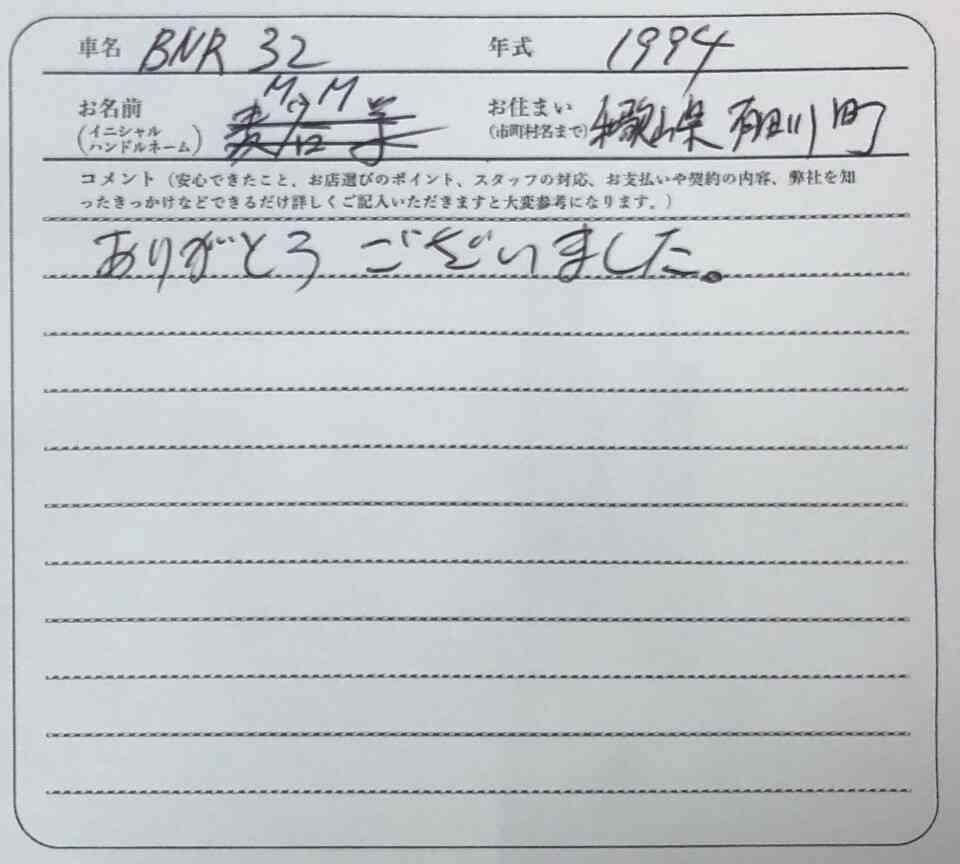 車名 BNR 32 年式 1994
お名前 M.M お住まい 和歌山県 有田川町
(イニシャル ハンドルネーム) (市町村名まで)
コメント（安心できたこと、お店選びのポイント、スタッフの対応、お支払いや契約の内容、弊社を知
ったきっかけなどできるだけ詳しくご記入いただきますと大変参考になります。）
ありがとう ございました。